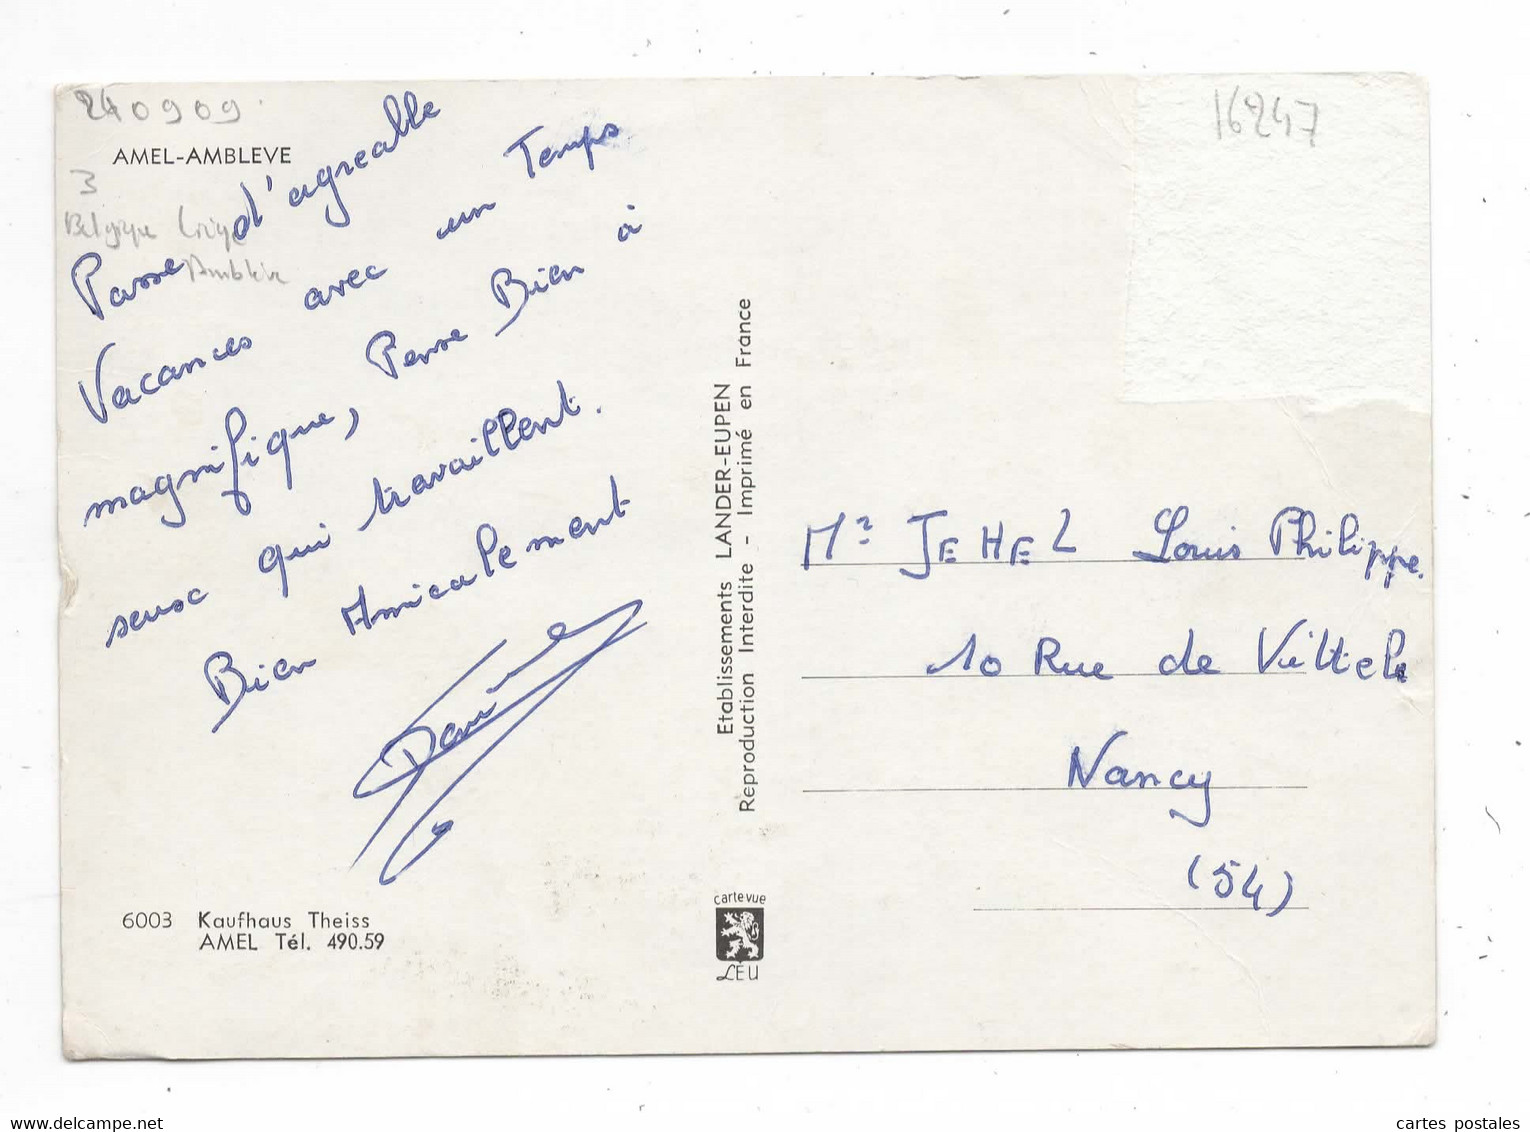 240909
16247
AMEL-AMBLEVE
3
Belgique Liège
Amblève
Passe d'agreable
Vacances avec un Temps
magnifique, Pense Bien à
seux qui travaillent.
Bien Amicalement
Etablissements LANDER-EUPEN
Reproduction Interdite - Imprimé en France
Mr JEHEL Louis Philippe.
10 Rue de Vittel
Nancy
(54)
6003 Kaufhaus Theiss
AMEL Tél. 490.59
carte vue
LEU
www.delcampe.net
cartes postales